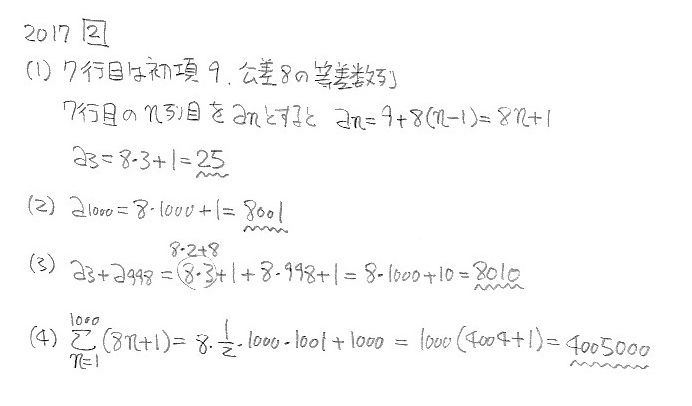 2017 2
(1) 7行目は初項9,公差8の等差数列
7行目のn列目をanとすると an=9+8(n-1)=8n+1
a3=8・3+1=25
(2) a1000=8・1000+1=8001
8・2+8
(3) a3+a998=8・3+1+8・998+1=8・1000+10=8010
(4) 1000Σn=1(8n+1)=8・1/2・1000・1001+1000=1000(4004+1)=4005000